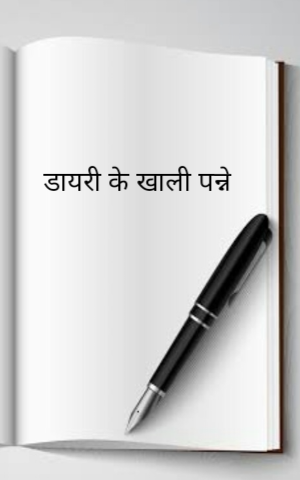 डायरी के खाली पन्ने